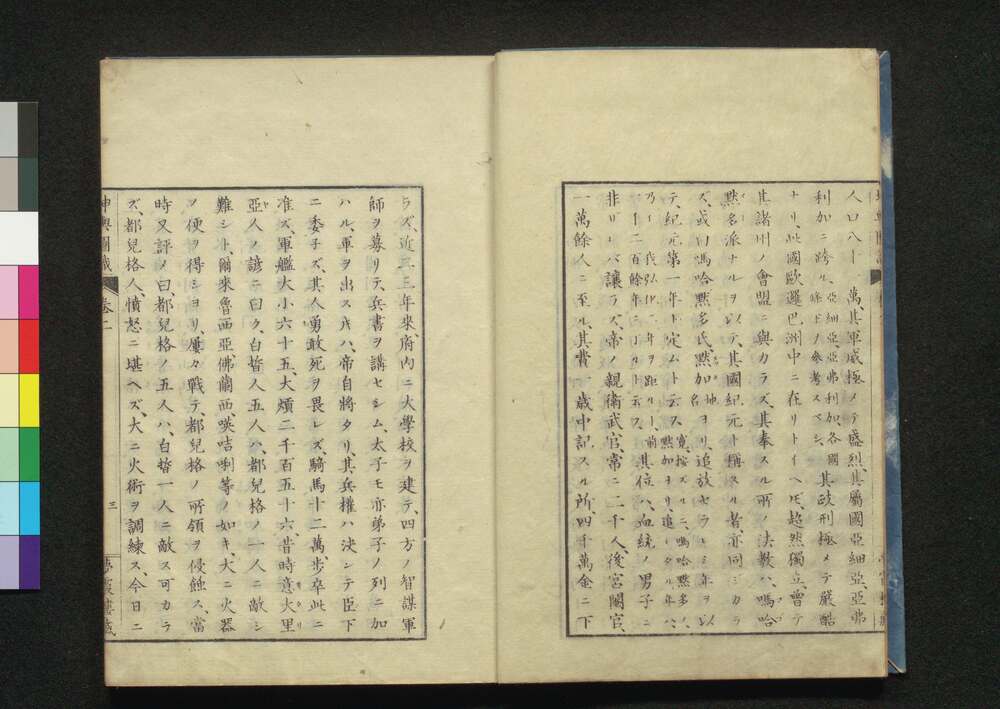 人口八千萬其軍威極メテ盛烈其屬國亞細亞亞弗
利加ニ跨ル亞細亞亞弗利加各國條下ノ參考スベシ其政刑極メテ嚴酷
ナリ此國歐邏巴洲中ニ在リトイヘ𪜈超然獨立會テ
其諸州ノ會盟ニ與カラズ其奉スル所ノ法教ハ嗎哈
黙名派ナルヲ以テ其國紀元ト稱スル者亦同ジカラ
ズ或曰嗎哈黙多氏黙加地名ヨリ追放セラルヽ年ヲ以
テ紀元第一年ト定ムト云ス寛按スルニ嗎哈黙多黙加ヨリ追ハレタル年ハ
乃我弘化二年ヲ距ル一前千二百餘年ニ丁ルト云ス其位ハ血統ノ男子ニ
非レバ讓ラズ帝ノ親衛武官常ニ二千人後宮閽官
一萬餘人ニ至ル其費一歳中記スル所四千萬金ニ下
ラズ近三三年來府内ニ大學校ヲ建テ四方ノ智謀軍
師ヲ募リテ兵書ヲ講セシム太子モ亦弟子ノ列ニ加
ハル軍ヲ出ス𪜈ハ帝自將タリ其兵權ハ決シテ臣下
ニ委子ズ其人勇敢死ヲ畏レズ騎馬十二萬步卒此ニ
准ズ軍艦大小六十五大熕二千百五十六昔時意大里
亞人ノ諺ニ曰ク白皙人五人ハ都兒格ノ一人ニ敵シ
難シト爾來魯西亞佛蘭西暎咭唎等ノ如キ大ニ火器
ノ便ヲ得シヨリ屢々戰テ都兒格ノ所領ヲ侵蝕ス當
時又評メ曰都兒格ノ五人ハ白皙一人ニ敵ス可カラ
ズ都兒格人憤怒ニ堪ヘズ大ニ火術ヲ調練ス今日ニ
坤輿圖識 卷二 三